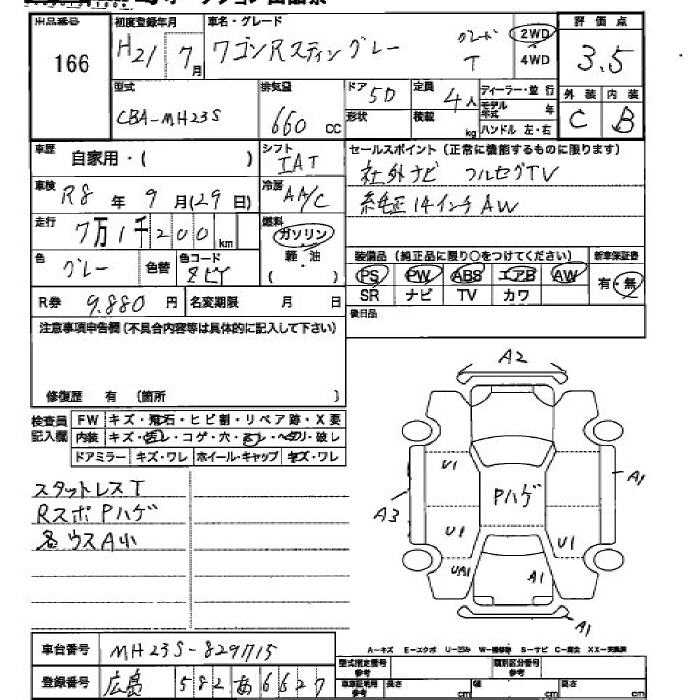 出品番号
166
初度登録年月
H21年7月
車名・グレード
ワゴンRスティングレー
グレード T
2WD
4WD
評価点
3.5
外装 内装
C B
型式
CBA-MH23S
排気量
660cc
ドア
5D
形状
定員
4人
積載
kg
ディーラー・並行
モデル年式 年
ハンドル 左・右
車歴
自家用・( )
シフト
IAT
セールスポイント(正常に機能するものに限ります)
社外ナビ フルセグTV
純正14インチAW
車検
R8年9月(29日)
冷房
AA/C
走行
7万1千200km
燃料
ガソリン
軽・油
( )
色
グレー
色替
色コード
装備品(純正品に限り○をつけてください)
PS PW ABS エアB AW
SR ナビ TV カワ
新車保証書
有・無
R券 9,880円
名変期限 月 日
後日品
注意事項申告欄(不具合内容等は具体的に記入して下さい)
修復歴 有(箇所 )
検査員記入欄
FW キズ・飛石・ヒビ割・リペア跡・X要
内装 キズ・コゲ・穴・破し
ドアミラー キズ・ワレ ホイール・キャップ キズ・ワレ
スタットレスT
RスポPハゲ
各ウスA小
A2
U1
A3
U1
UA1
Pハゲ
A1
A1
U1
A1
車台番号 MH23S-829715
登録番号 広島 582 あ 6627
A-キズ E-エクボ U-凹み W-補修跡 S-サビ C-腐食 XX-交換済
型式指定番号
参考
類別区分番号
参考
車庫証明用
参考
長さ cm
幅 cm
高さ cm